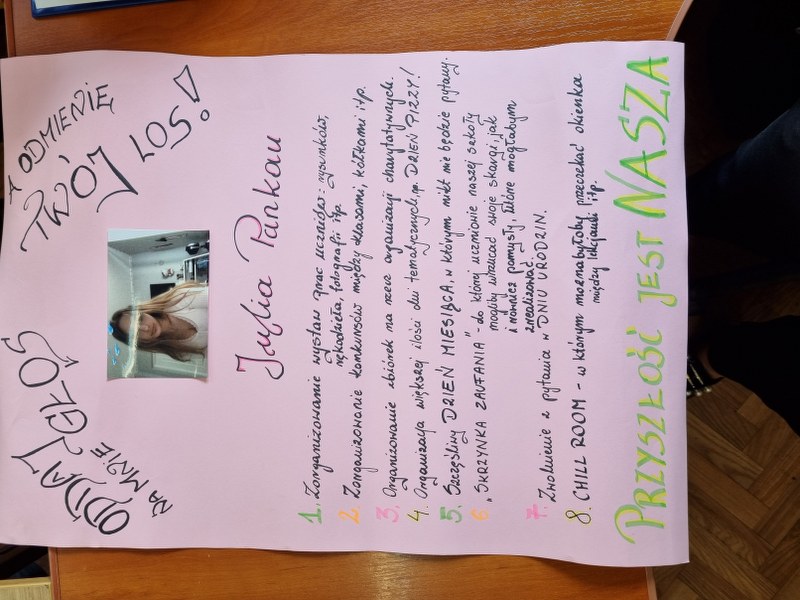 ODDAJ GŁOS
NA MNIE
A ODMIENIĘ
TWÓJ LOS!
Julia Pankau
1. Zorganizowanie wystaw prac uczniów: rysunków,
rękodzieła, fotografii itp.
2. Zorganizowanie konkursów między klasami, kółkami itp.
3. Organizowanie zbiórek na rzecz organizacji charytatywnych.
4. Organizacja większej ilości dni tematycznych, np. DZIEŃ PIZZY!
5. Szczęśliwy DZIEŃ MIESIĄCA, w którym nikt nie będzie pytany.
6. „SKRZYNKA ZAUFANIA" - do której uczniowie naszej szkoły
mogliby wrzucać swoje skargi, jak
i również pomysły, które mogłabym
zrealizować.
7. Zwolnienie z pytania w DNIU URODZIN.
8. CHILL ROOM - w którym można byłoby przeczekać okienka
między lekcjami itp.
PRZYSZŁOŚĆ JEST NASZA